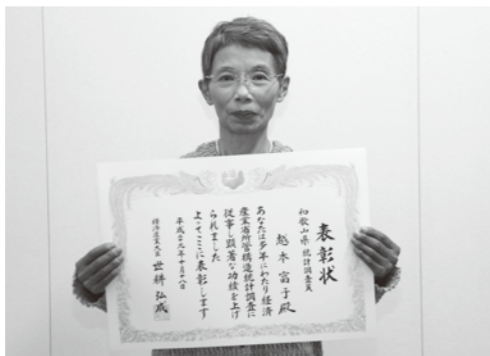 表彰状
和歌山県 統計調査員
越本富子殿
あなたは多年にわたり経済
産業省所管構造統計調査に
従事し顕著な功績を上げ
られました
よってここに表彰します
平成二十九年十月十八日
経済産業大臣 世耕弘成